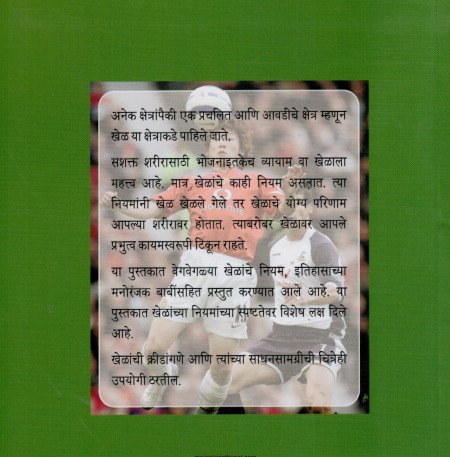 अनेक क्षेत्रांपैकी एक प्रचलित आणि आवडीचे क्षेत्र म्हणून
खेळ या क्षेत्राकडे पाहिले जाते.
सशक्त शरीरासाठी भोजनाइतकेच व्यायाम वा खेळाला
महत्त्व आहे. मात्र खेळांचे काही नियम असतात. त्या
नियमांनी खेळ खेळले गेले तर खेळाचे योग्य परिणाम
आपल्या शरीरावर होतात. त्याबरोबर खेळावर आपले
प्रभुत्व कायमस्वरूपी टिकून राहते.
या पुस्तकात वेगवेगळ्या खेळांचे नियम, इतिहासाच्या
मनोरंजक बाबींसहित प्रस्तुत करण्यात आले आहे. या
पुस्तकात खेळांच्या नियमांच्या स्पष्टतेवर विशेष लक्ष दिले
आहे.
खेळांची क्रीडांगणे आणि त्यांच्या साधनसामग्रीची चित्रेही
उपयोगी ठरतील.